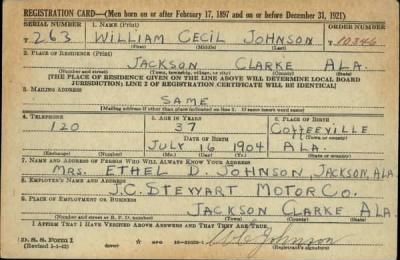 REGISTRATION CARD—(Men born on or after February 17, 1897 and on or before December 31, 1921)
SERIAL NUMBER 1. NAME (Print) ORDER NUMBER
T 263 WILLIAM CECIL JOHNSON T 10,346
(First) (Middle) (Last)
2. PLACE OF RESIDENCE (Print)
JACKSON CLARKE ALA.
(Number and street) (Town, township, village, or city) (County) (State)
[THE PLACE OF RESIDENCE GIVEN ON THE LINE ABOVE WILL DETERMINE LOCAL BOARD
JURISDICTION; LINE 2 OF REGISTRATION CERTIFICATE WILL BE IDENTICAL]
3. MAILING ADDRESS
SAME
[Mailing address if other than place indicated on line 2. If same insert word same]
4. TELEPHONE 5. AGE IN YEARS 6. PLACE OF BIRTH
120 37 COFFEEVILLE
DATE OF BIRTH (Town or county)
JULY 16 1904 ALA.
(Exchange) (Number) (Mo.) (Day) (Yr.) (State or country)
7. NAME AND ADDRESS OF PERSON WHO WILL ALWAYS KNOW YOUR ADDRESS
MRS. ETHEL D. JOHNSON, JACKSON, ALA.
8. EMPLOYER'S NAME AND ADDRESS
J.C. STEWART MOTOR CO.
9. PLACE OF EMPLOYMENT OR BUSINESS
JACKSON CLARKE ALA
(Number and street or R. F. D. number) (Town) (County) (State)
I AFFIRM THAT I HAVE VERIFIED ABOVE ANSWERS AND THAT THEY ARE TRUE.
D. S. S. Form 1
(Revised 1-1-42) (over) Johnson
(Registrant's signature)